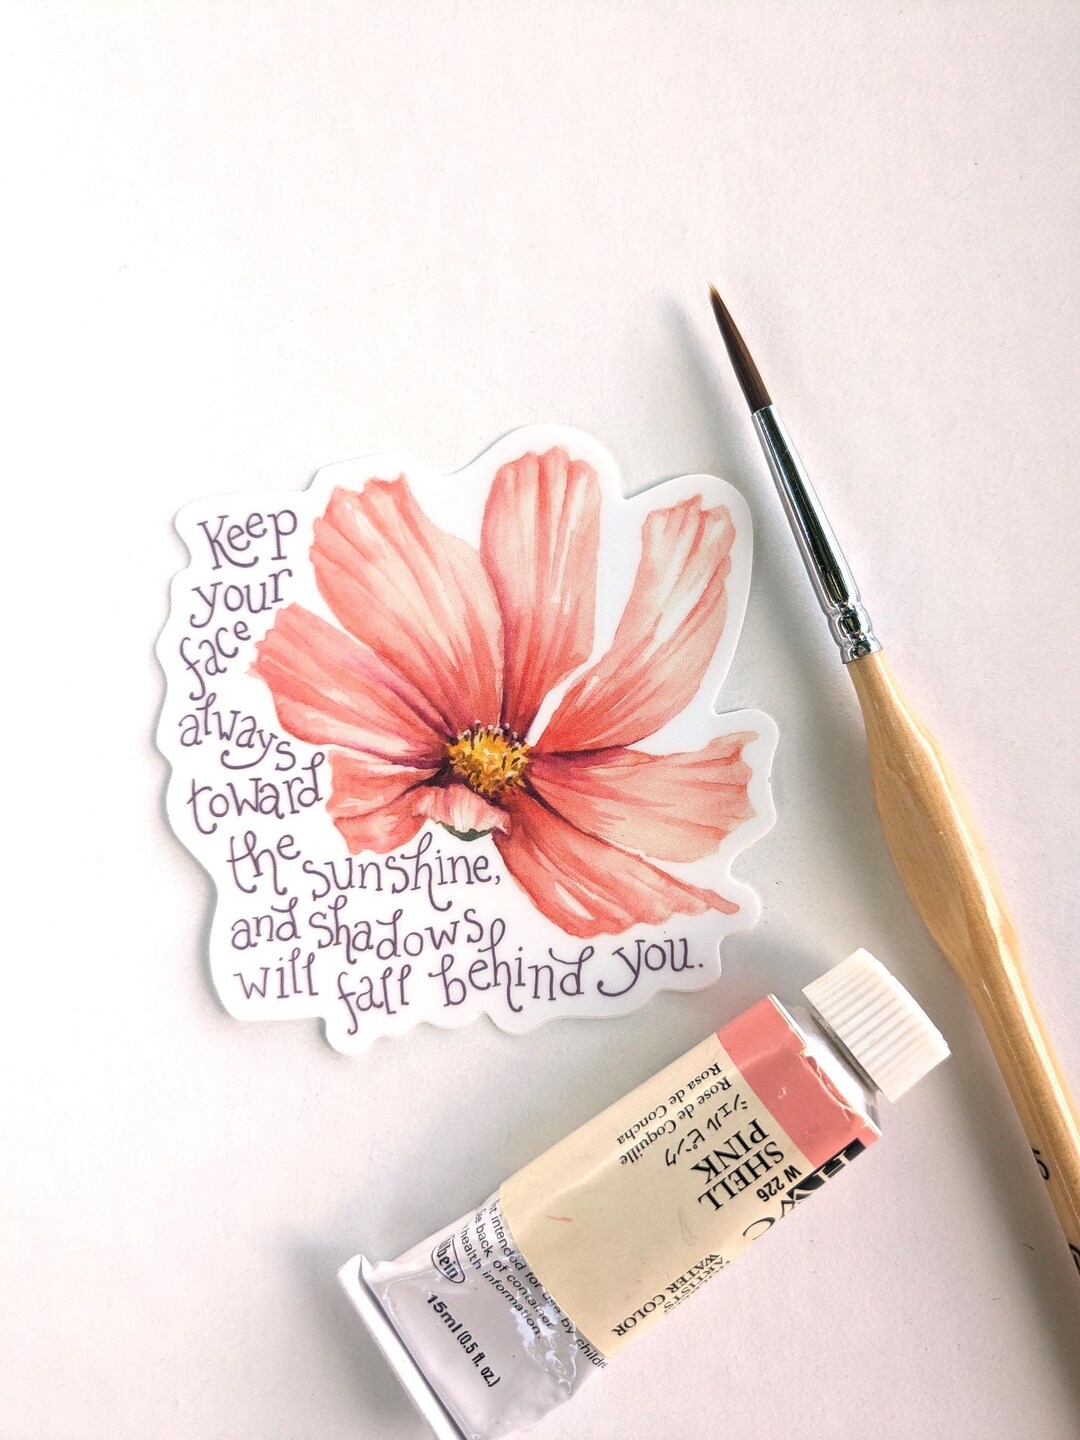 Keep
your
face
always
toward
the sunshine,
and shadows
will fall behind you.
HWC
W 226
SHELL
PINK
シェル ピンク
Rose de Coquille
Rosa de Concha
ARTISTS'
WATER COLOR
intended for use by
back of container
health information.
bein
15ml (0.5 fl. oz.)